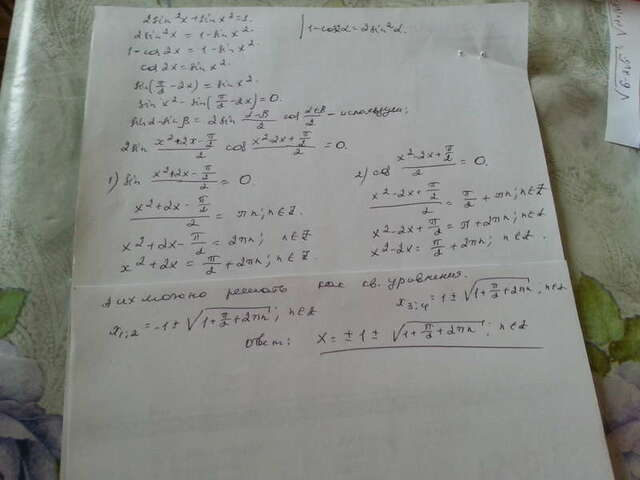 2sin²x + sin x² = 1. | 1 - cos2α = 2sin²α.
2sin²x = 1 - sin x².
1 - cos2x = 1 - sin x².
cos2x = sin x².
sin(π/2 - 2x) = sin x².
sin x² - sin(π/2 - 2x) = 0.
sinα - sinβ = 2sin (α-β)/2 cos (α+β)/2 - используем;
2sin (x² + 2x - π/2)/2 cos (x² - 2x + π/2)/2 = 0.
1) sin (x² + 2x - π/2)/2 = 0.
(x² + 2x - π/2)/2 = πn; n∈Z
x² + 2x - π/2 = 2πn; n∈Z
x² + 2x = π/2 + 2πn; n∈Z.
2) cos (x² - 2x + π/2)/2 = 0.
(x² - 2x + π/2)/2 = π/2 + πn; n∈Z
x² - 2x + π/2 = π + 2πn; n∈Z
x² - 2x = π/2 + 2πn; n∈Z.
А их можно решать как кв. уравнения.
x₁,₂ = -1 ± √(1 + π/2 + 2πn); n∈Z
x₃,₄ = 1 ± √(1 + π/2 + 2πn); n∈Z
Ответ: x = ±1 ± √(1 + π/2 + 2πn); n∈Z